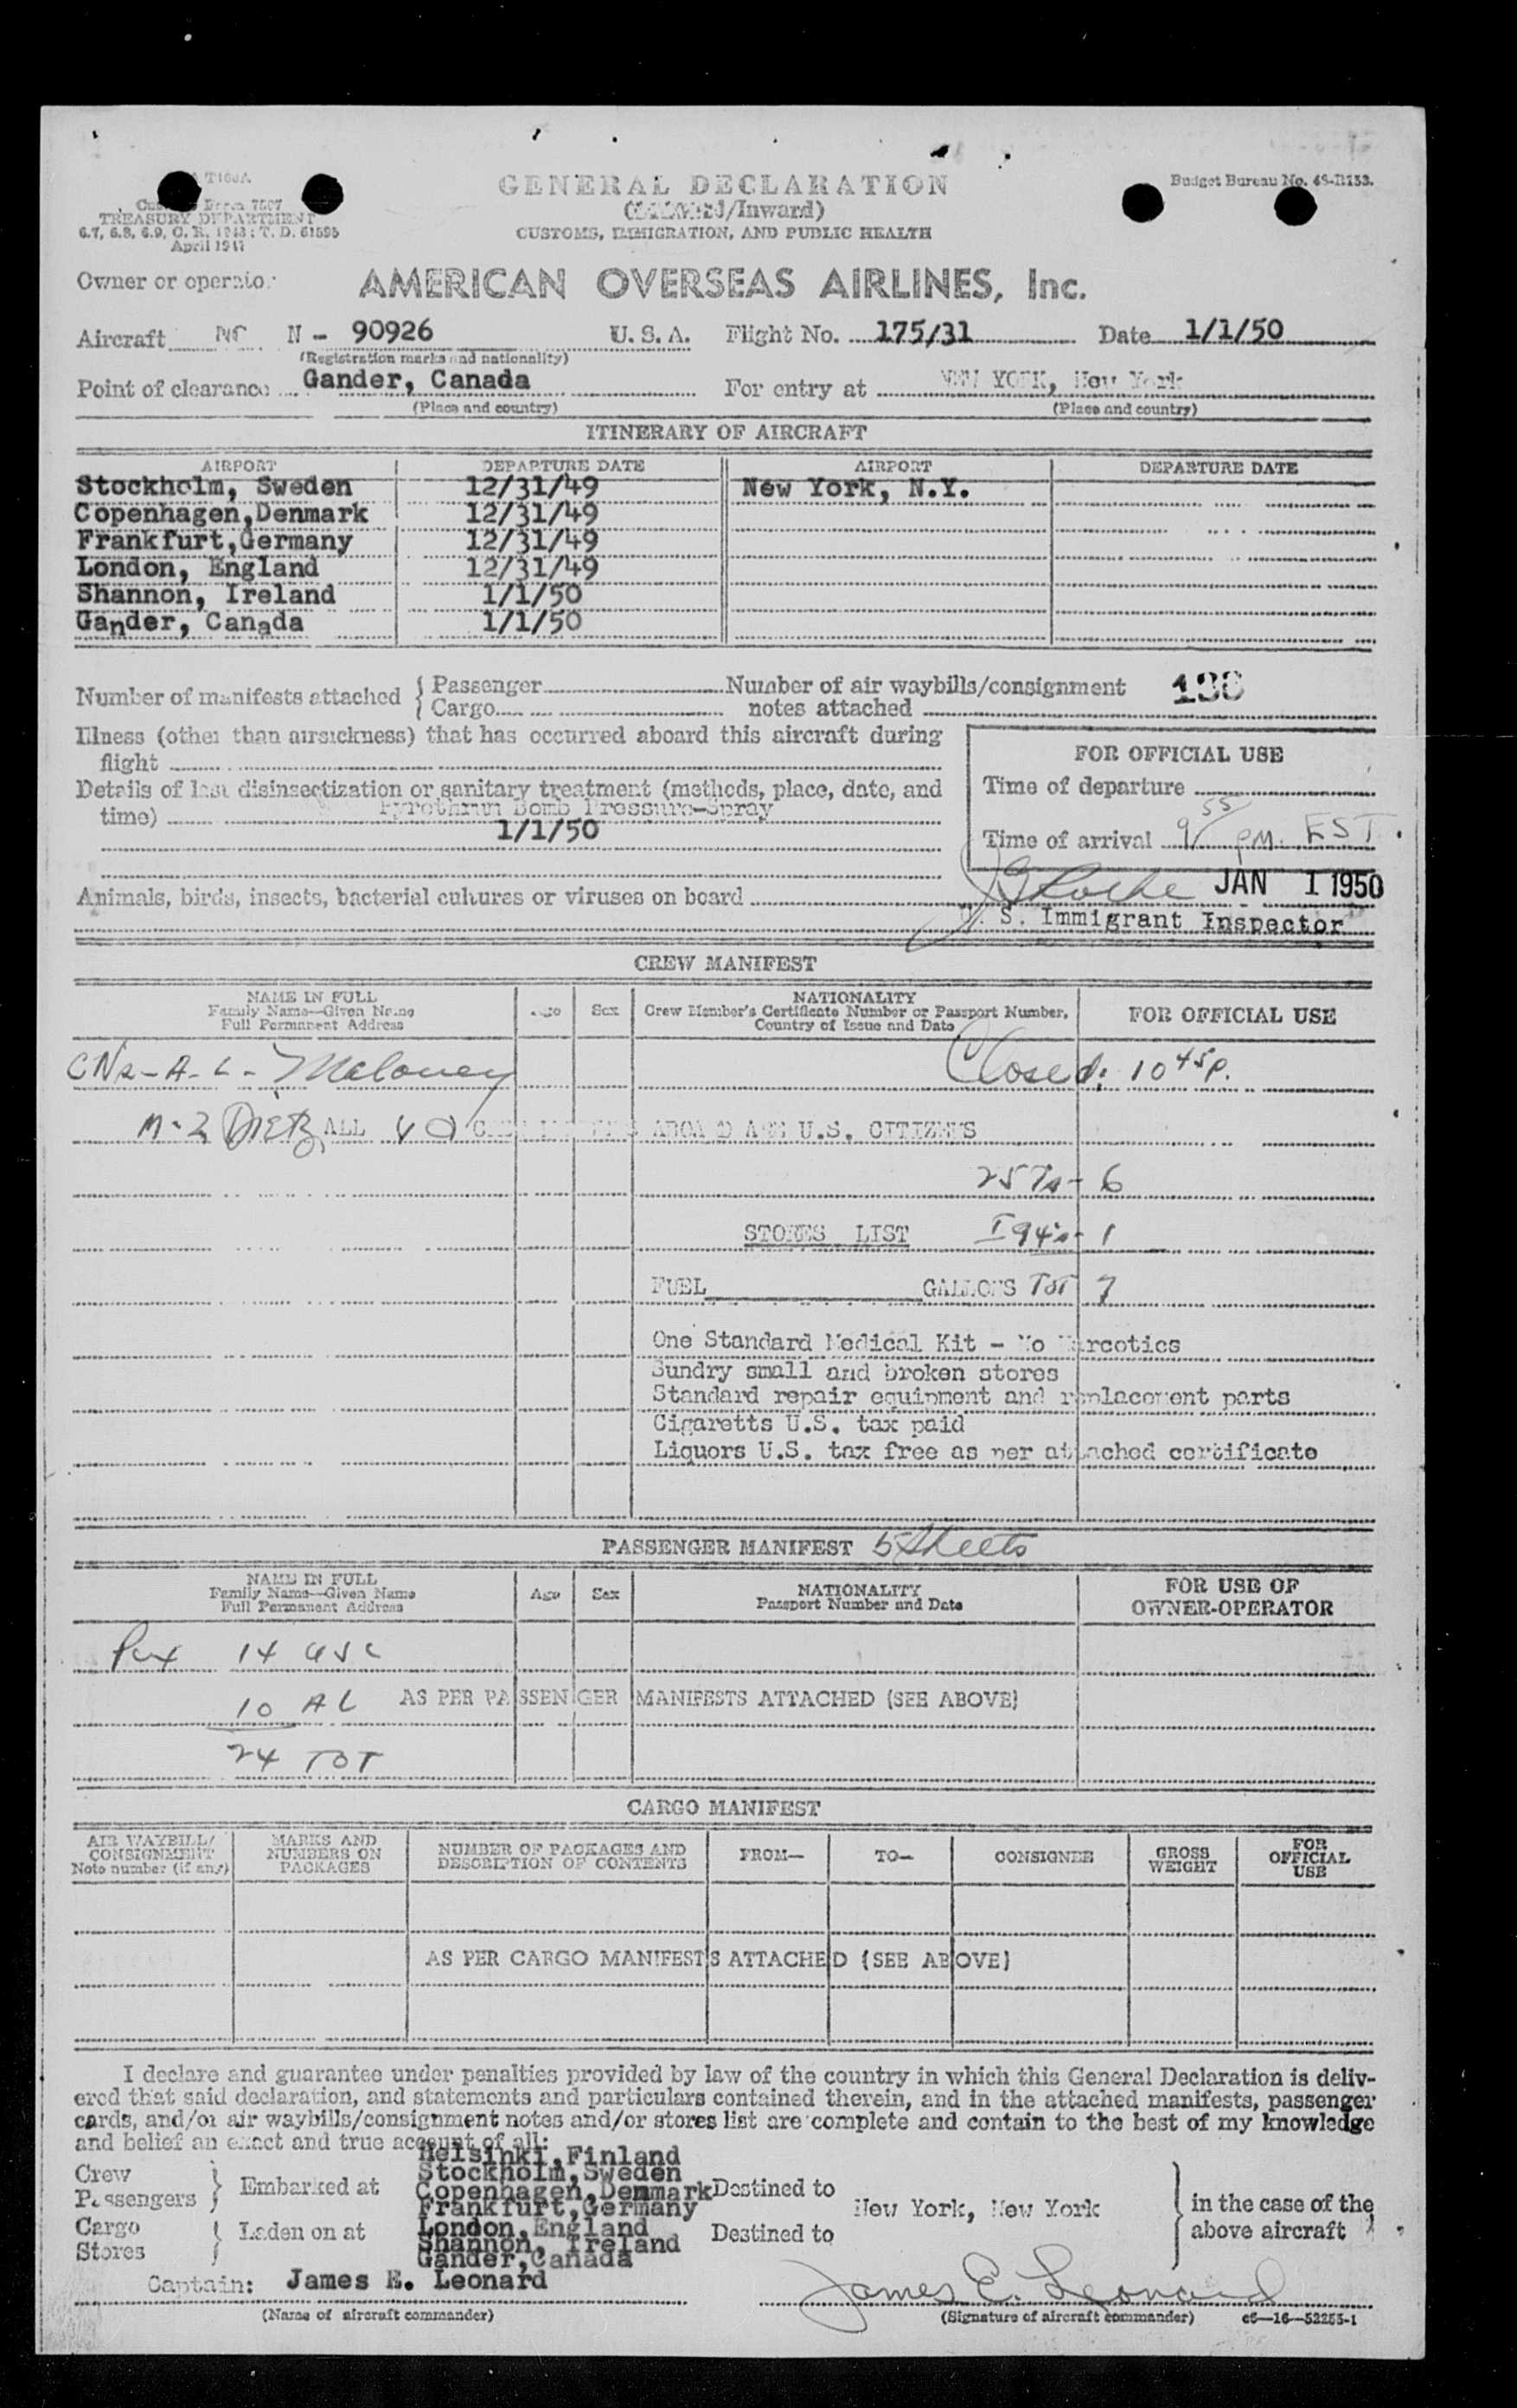 GENERAL DECLARATION
Budget Bureau No.
Form 7507
(/Inward)
TREASURY DEPARTMENT
CUSTOMS, IMMIGRATION, AND PUBLIC HEALTH
April 1947
Owner or operator
AMERICAN OVERSEAS AIRLINES, Inc.
Aircraft NC N - 90926 U. S. A. Flight No. 175/31 Date 1/1/50
(Registration marks and nationality)
Point of clearance Gander, Canada For entry at NEW YORK, New York
(Place and country) (Place and country)
ITINERARY OF AIRCRAFT
AIRPORT DEPARTURE DATE AIRPORT DEPARTURE DATE
Stockholm, Sweden 12/31/49 New York, N.Y.
Copenhagen,Denmark 12/31/49
Frankfurt,Germany 12/31/49
London, England 12/31/49
Shannon, Ireland 1/1/50
Gander, Canada 1/1/50
Number of manifests attached { Passenger Number of air waybills/consignment
Cargo notes attached
Illness (other than airsickness) that has occurred aboard this aircraft during
flight
FOR OFFICIAL USE
Details of last disinsectization or sanitary treatment (methods, place, date, and
time) Pyrethrum Bomb Pressure-Spray
1/1/50
Time of departure
Time of arrival 9 55 PM. EST
Animals, birds, insects, bacterial cultures or viruses on board
JAN 1 1950
U. S. Immigrant Inspector
CREW MANIFEST
NAME IN FULL
Family Name—Given Name
Full Permanent Address
Age Sex
NATIONALITY
Crew Member's Certificate Number or Passport Number,
Country of Issue and Date
FOR OFFICIAL USE
A-L- Maloney Closed: 10 45 P.
ALL ABOARD ARE U.S. CITIZENS
6
STORES LIST I94's - 1
FUEL GALLONS TOT 7
One Standard Medical Kit - No Narcotics
Sundry small and broken stores
Standard repair equipment and replacement parts
Cigaretts U.S. tax paid
Liquors U.S. tax free as per attached certificate
PASSENGER MANIFEST 5 Sheets
NAME IN FULL
Family Name—Given Name
Full Permanent Address
Age Sex
NATIONALITY
Passport Number and Date
FOR USE OF
OWNER-OPERATOR
Pax 14 USC
10 AL AS PER PASSENGER MANIFESTS ATTACHED (SEE ABOVE)
24 TOT
CARGO MANIFEST
AIR WAYBILL/
CONSIGNMENT
Note number (if any)
MARKS AND
NUMBERS ON
PACKAGES
NUMBER OF PACKAGES AND
DESCRIPTION OF CONTENTS
FROM—
TO—
CONSIGNEE
GROSS
WEIGHT
FOR
OFFICIAL
USE
AS PER CARGO MANIFESTS ATTACHED (SEE ABOVE)
I declare and guarantee under penalties provided by law of the country in which this General Declaration is deliv-
ered that said declaration, and statements and particulars contained therein, and in the attached manifests, passenger
cards, and/or air waybills/consignment notes and/or stores list are complete and contain to the best of my knowledge
and belief an exact and true account of all:
Crew
Passengers
Embarked at
Cargo
Stores
Laden on at
Helsinki,Finland
Stockholm,Sweden
Copenhagen,Denmark
Frankfurt,Germany
London,England
Shannon, Ireland
Gander,Canada
Destined to
Destined to
New York, New York
in the case of the
above aircraft
Captain: James E. Leonard James E. Leonard
(Name of aircraft commander) (Signature of aircraft commander) c6—16—52255-1